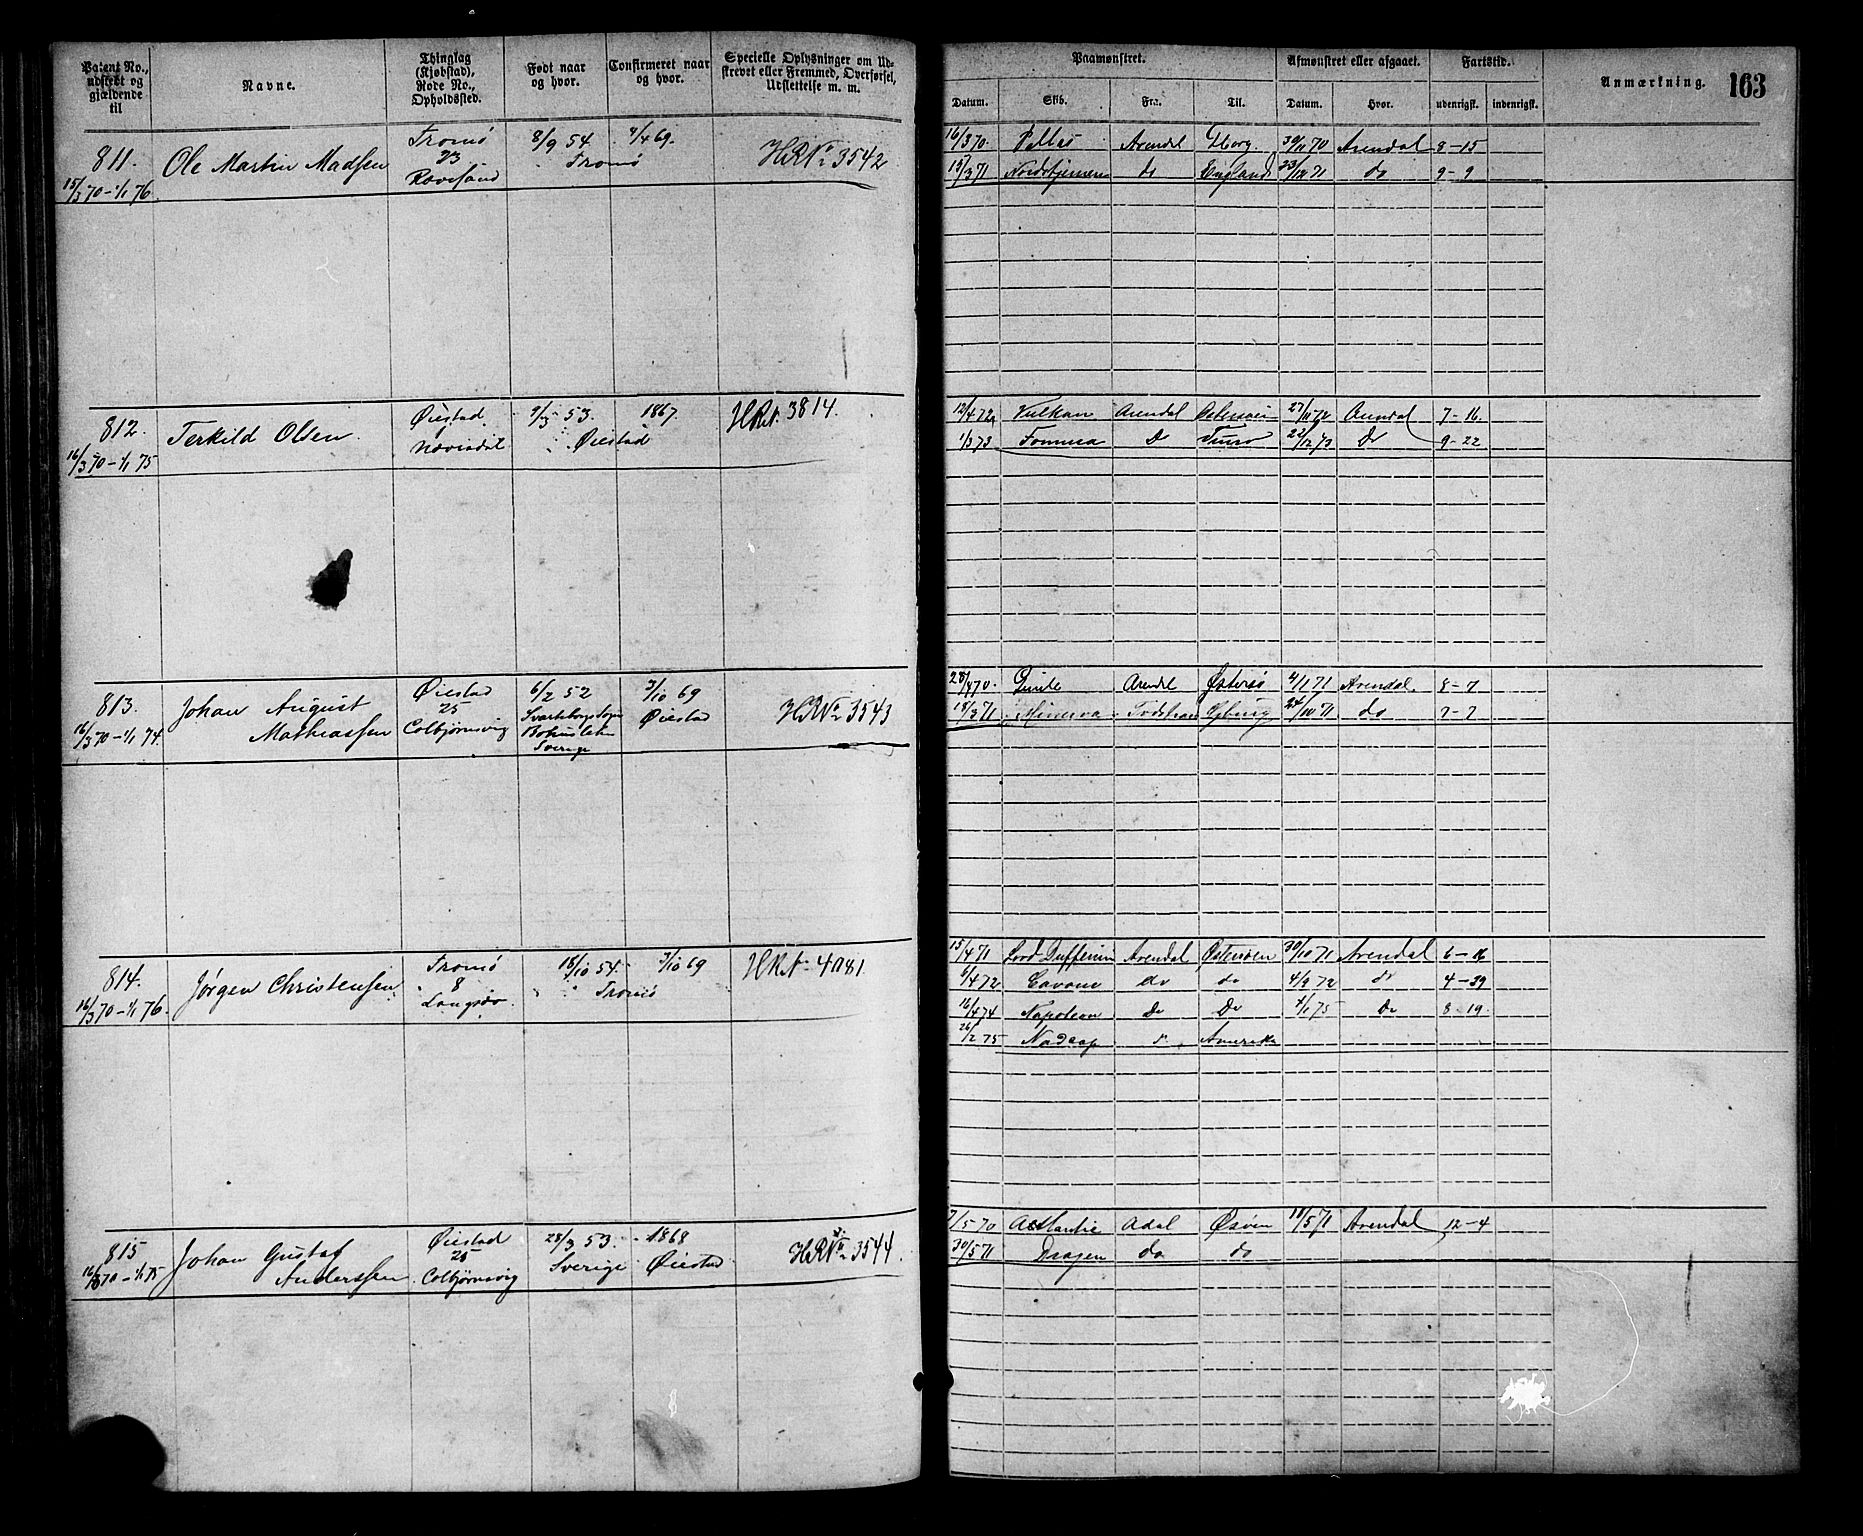 Patent No., udstedt og gjældende til
Navne.
Thinglag (Kjøbstad), Rode No., Opholdssted.
Født naar og hvor.
Confirmeret naar og hvor.
Specielle Oplysninger om Udskrevet eller Fremmed, Overførsel, Udslettelse m. m.
Paamønstret.
Afmønstret eller afgaaet.
Fartstid.
Anmærkning.
163
Datum. Skib. Fra. Til. Datum. Hvor. udenrigsk. indenrigsk.
811. Ole Martin Madssen Tromø 8/9 54 7/4 69. HRNo 3542
23 Tromø
15/3 70 – 1/1 76. Ravesand
16/3 70 Pallas Arendal 30/11 70 Arendal 8-15
15/3 71 Nordstjernen do England 23/12 71 do 9-9
812. Terkild Olsen Øiestad 9/3 53. 1867. HRN. 3814.
1 Øiestad
16/3 70 – 1/1 75
12/4 72 Vulkan Arendal 27/11 72 Arendal 7-16
1/3 73 Do 22/12 73 Do 9-22
813. Johan August Mathiassen Øiestad 6/2 52 3/10 69 HRNo 3543
25 Øiestad
16/3 70 – 1/1 74. Colbjørnsvig Sverige
28/4 70. Arendal Østersø 4/1 71 Arendal. 8-7
18/3 71 Minerva 24/10 71 do 7-7
814. Jørgen Christensen Tromø 18/10 54. 3/10 69 HRN. 4081.
8 Tromø
16/3 70 – 1/1 76. Langsæv
15/4 71 Lord Dufferin Arendal Østersøen 30/10 71 Arendal 6-16
6/4 72 do do 4/9 72 do 4-29
16/4 74 Napoleon Do Do 7/1 75 Do 8-19.
26/2 75 Amerika
815 Johan Gustaf Anderssen Øiestad 28/3 53. 1868 HRNo 3544.
25 Sverige Øiestad
16/3 70 – 1/1 75 Colbjørnsvig
7/5 70 Atlantic Adal 18/5 71 Arendal 12-4
30/5 71 Dragen do do